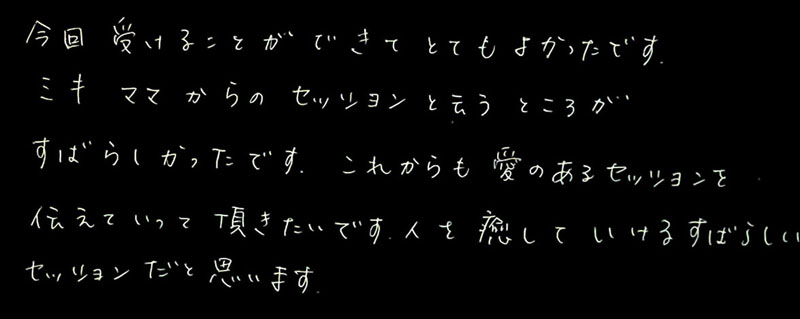 今回 受けることができてとてもよかったです.
ミキ ママからのセッションと云うところが
すばらしかったです. これからも愛のあるセッションを
伝えていって頂きたいです. 人を癒していけるすばらしい
セッションだと思います.